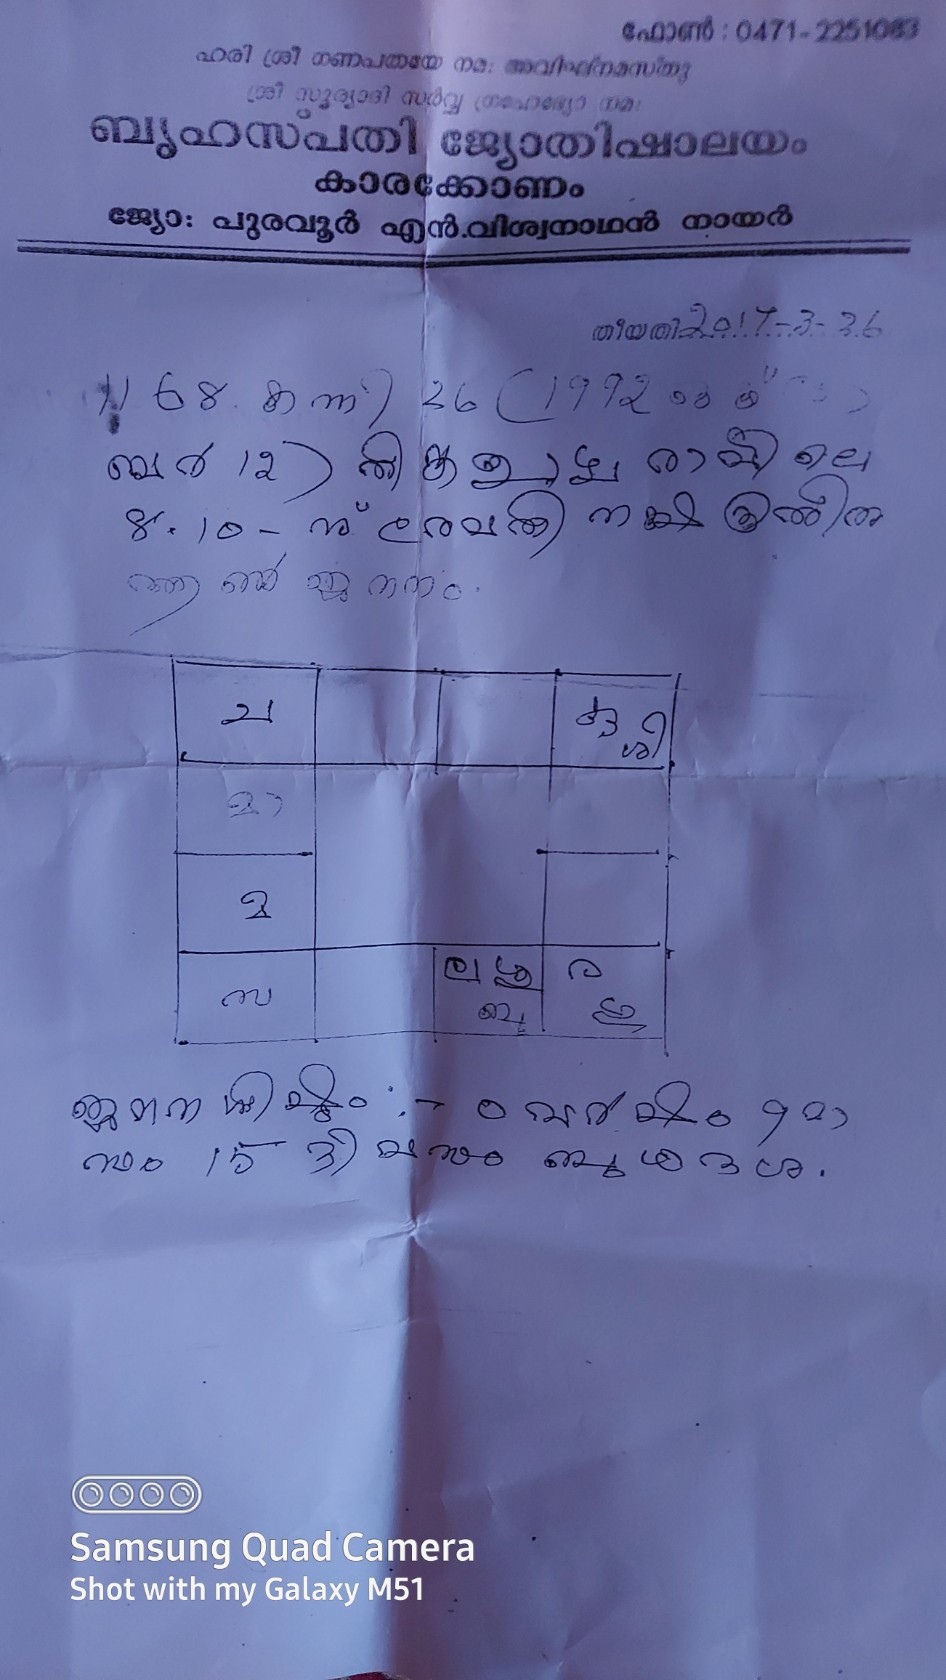 ഫോൺ : 0471-2251083
ഹരി ശ്രീ ഗണപതയേ നമ: അവിഘ്നമസ്തു
ശ്രീ സൂര്യാദി സർവ്വ ഗ്രഹേഭ്യോ നമ:
ബൃഹസ്പതി ജ്യോതിഷാലയം
കാരക്കോണം
ജ്യോ: പുരവൂർ എൻ.വിശ്വനാഥൻ നായർ
തീയതി 2017-3-26
1168 കന്നി 26 (1992
ബർ 12) തിങ്കളാഴ്ച രാവിലെ
8.10- ന് രേവതി നക്ഷത്രത്തിൽ
ജനനം.
ച
ശി
മാ
മ
സ
ല ശു ര
ബു
ജനന ശിഷ്ടം :- 0 വർഷം 9 മാ
സം 15 ദിവസം ബുധദശ.
Samsung Quad Camera
Shot with my Galaxy M51